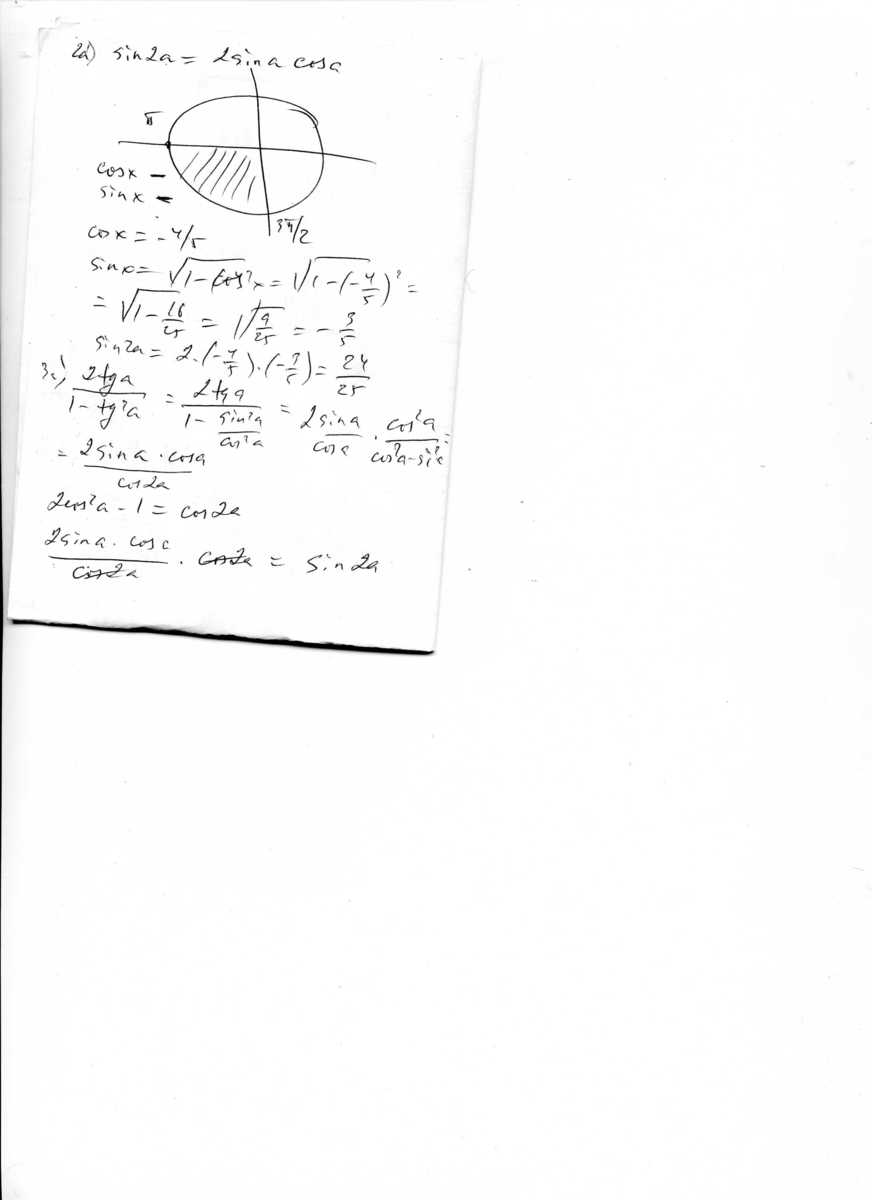 2a) sin2a = 2sina cosa
π
cosx –
sinx –
3π/2
cosx = -4/5
sinx = √1-cos²x = √1-(-4/5)² =
= √1-16/25 = √9/25 = -3/5
sin2a = 2·(-4/5)·(-3/5) = 24/25
3a) 2tga/1-tg²a = 2tga/1-sin²a/cos²a = 2sina/cosa · cos²a/cos²a-si²a =
= 2sina·cosa/cos2a
2cos²a - 1 = cos2a
2sina·cosa/cos2a · cos2a = sin2a